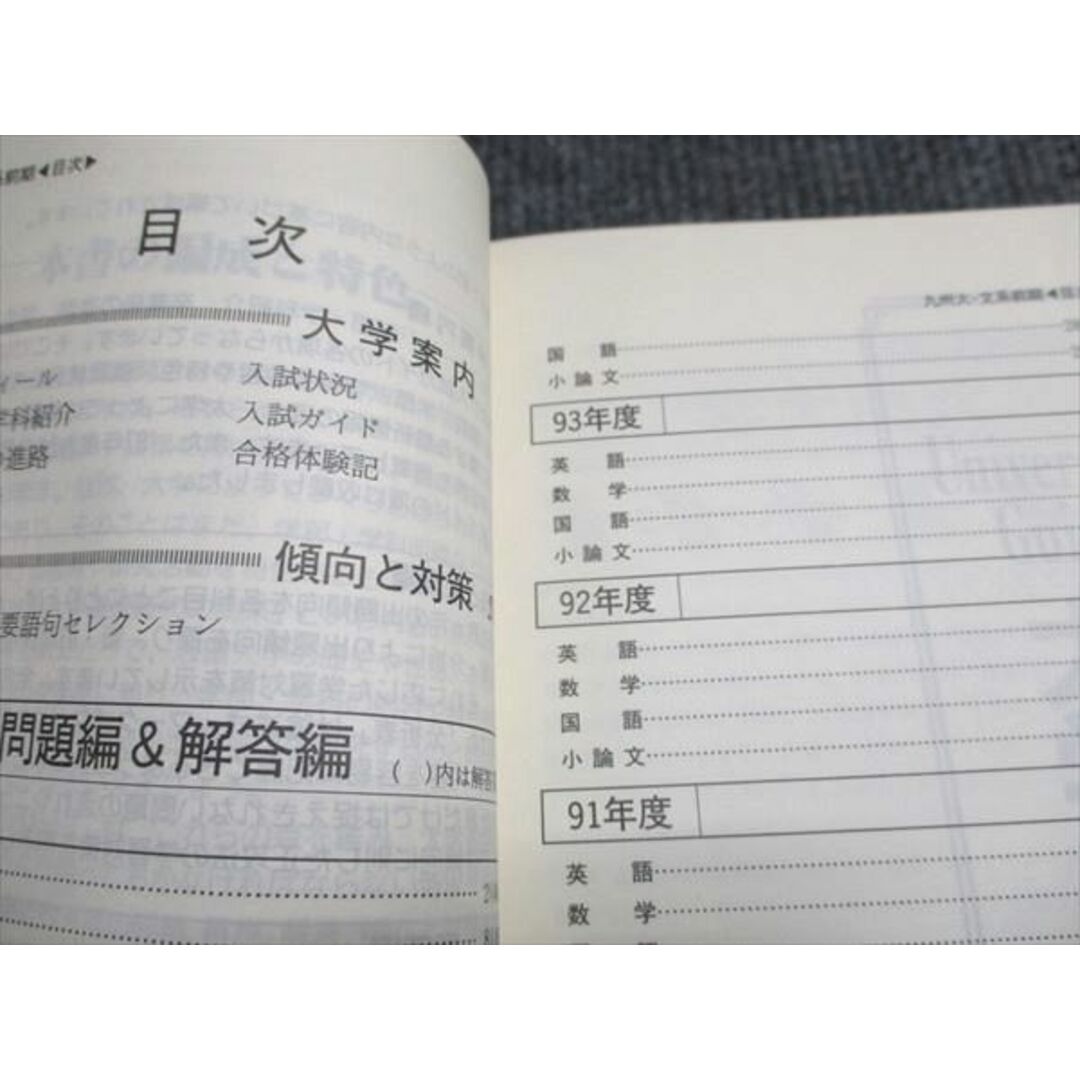 系前期◀目次▶
目 次
大学案内
ィール 入試状況
学科紹介 入試ガイド
進路 合格体験記
傾向と対策
要語句セレクション
問題編&解答編 ( )内は解答
九州大-文系前期◀目次
国 語
小論文
93年度
英 語
数 学
国 語
小論文
92年度
英 語
数 学
国 語
小論文
91年度
英 語
数 学